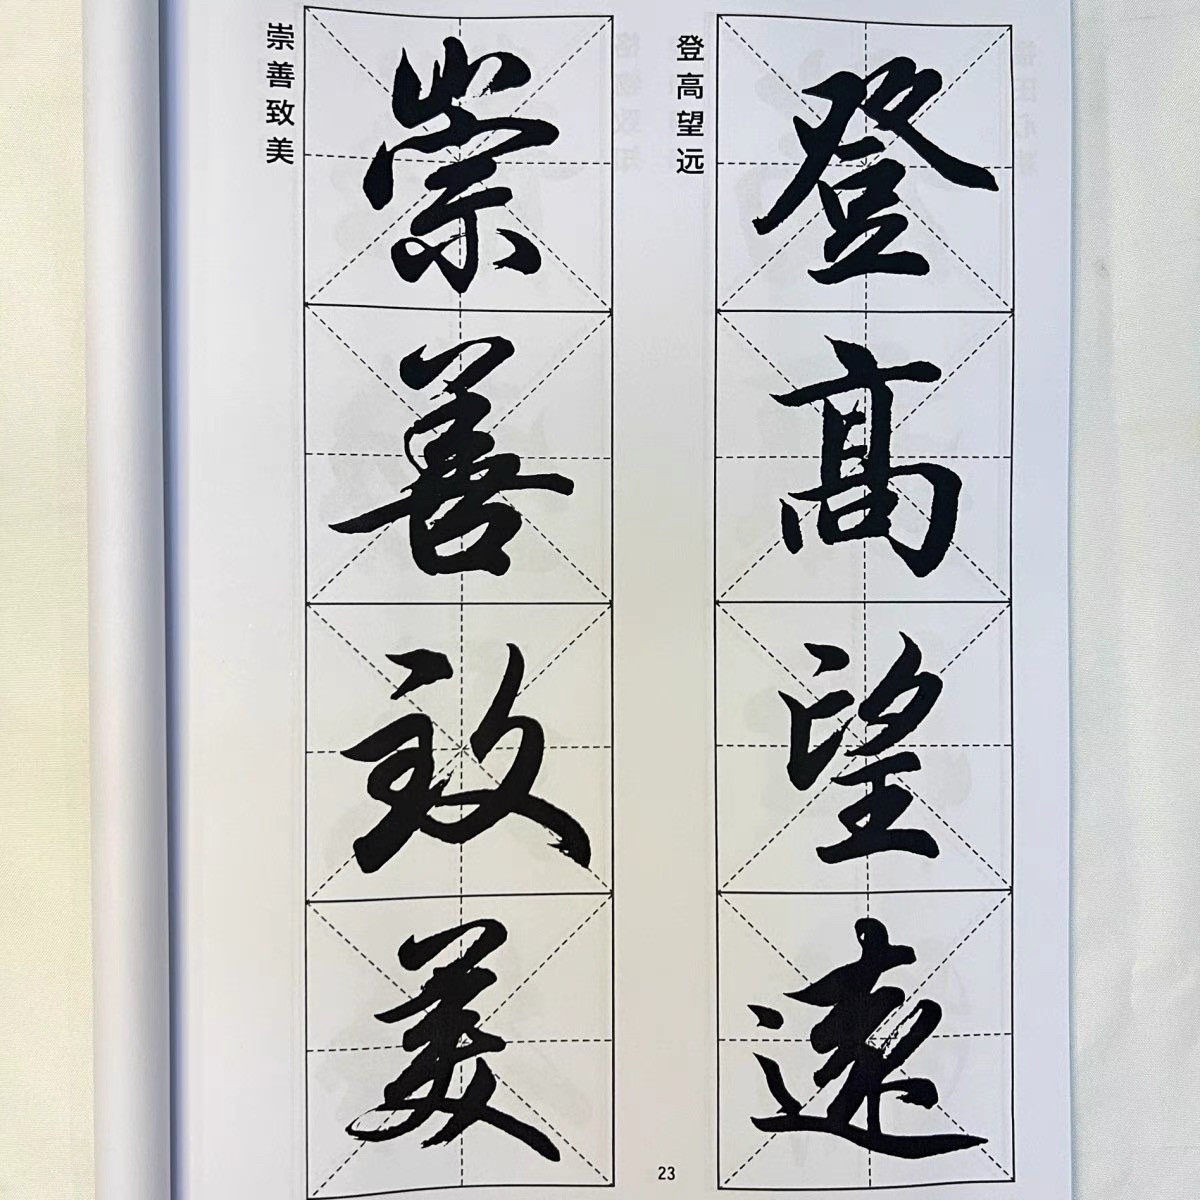 登高望远
登高望遠
崇善致美
崇善致美
23